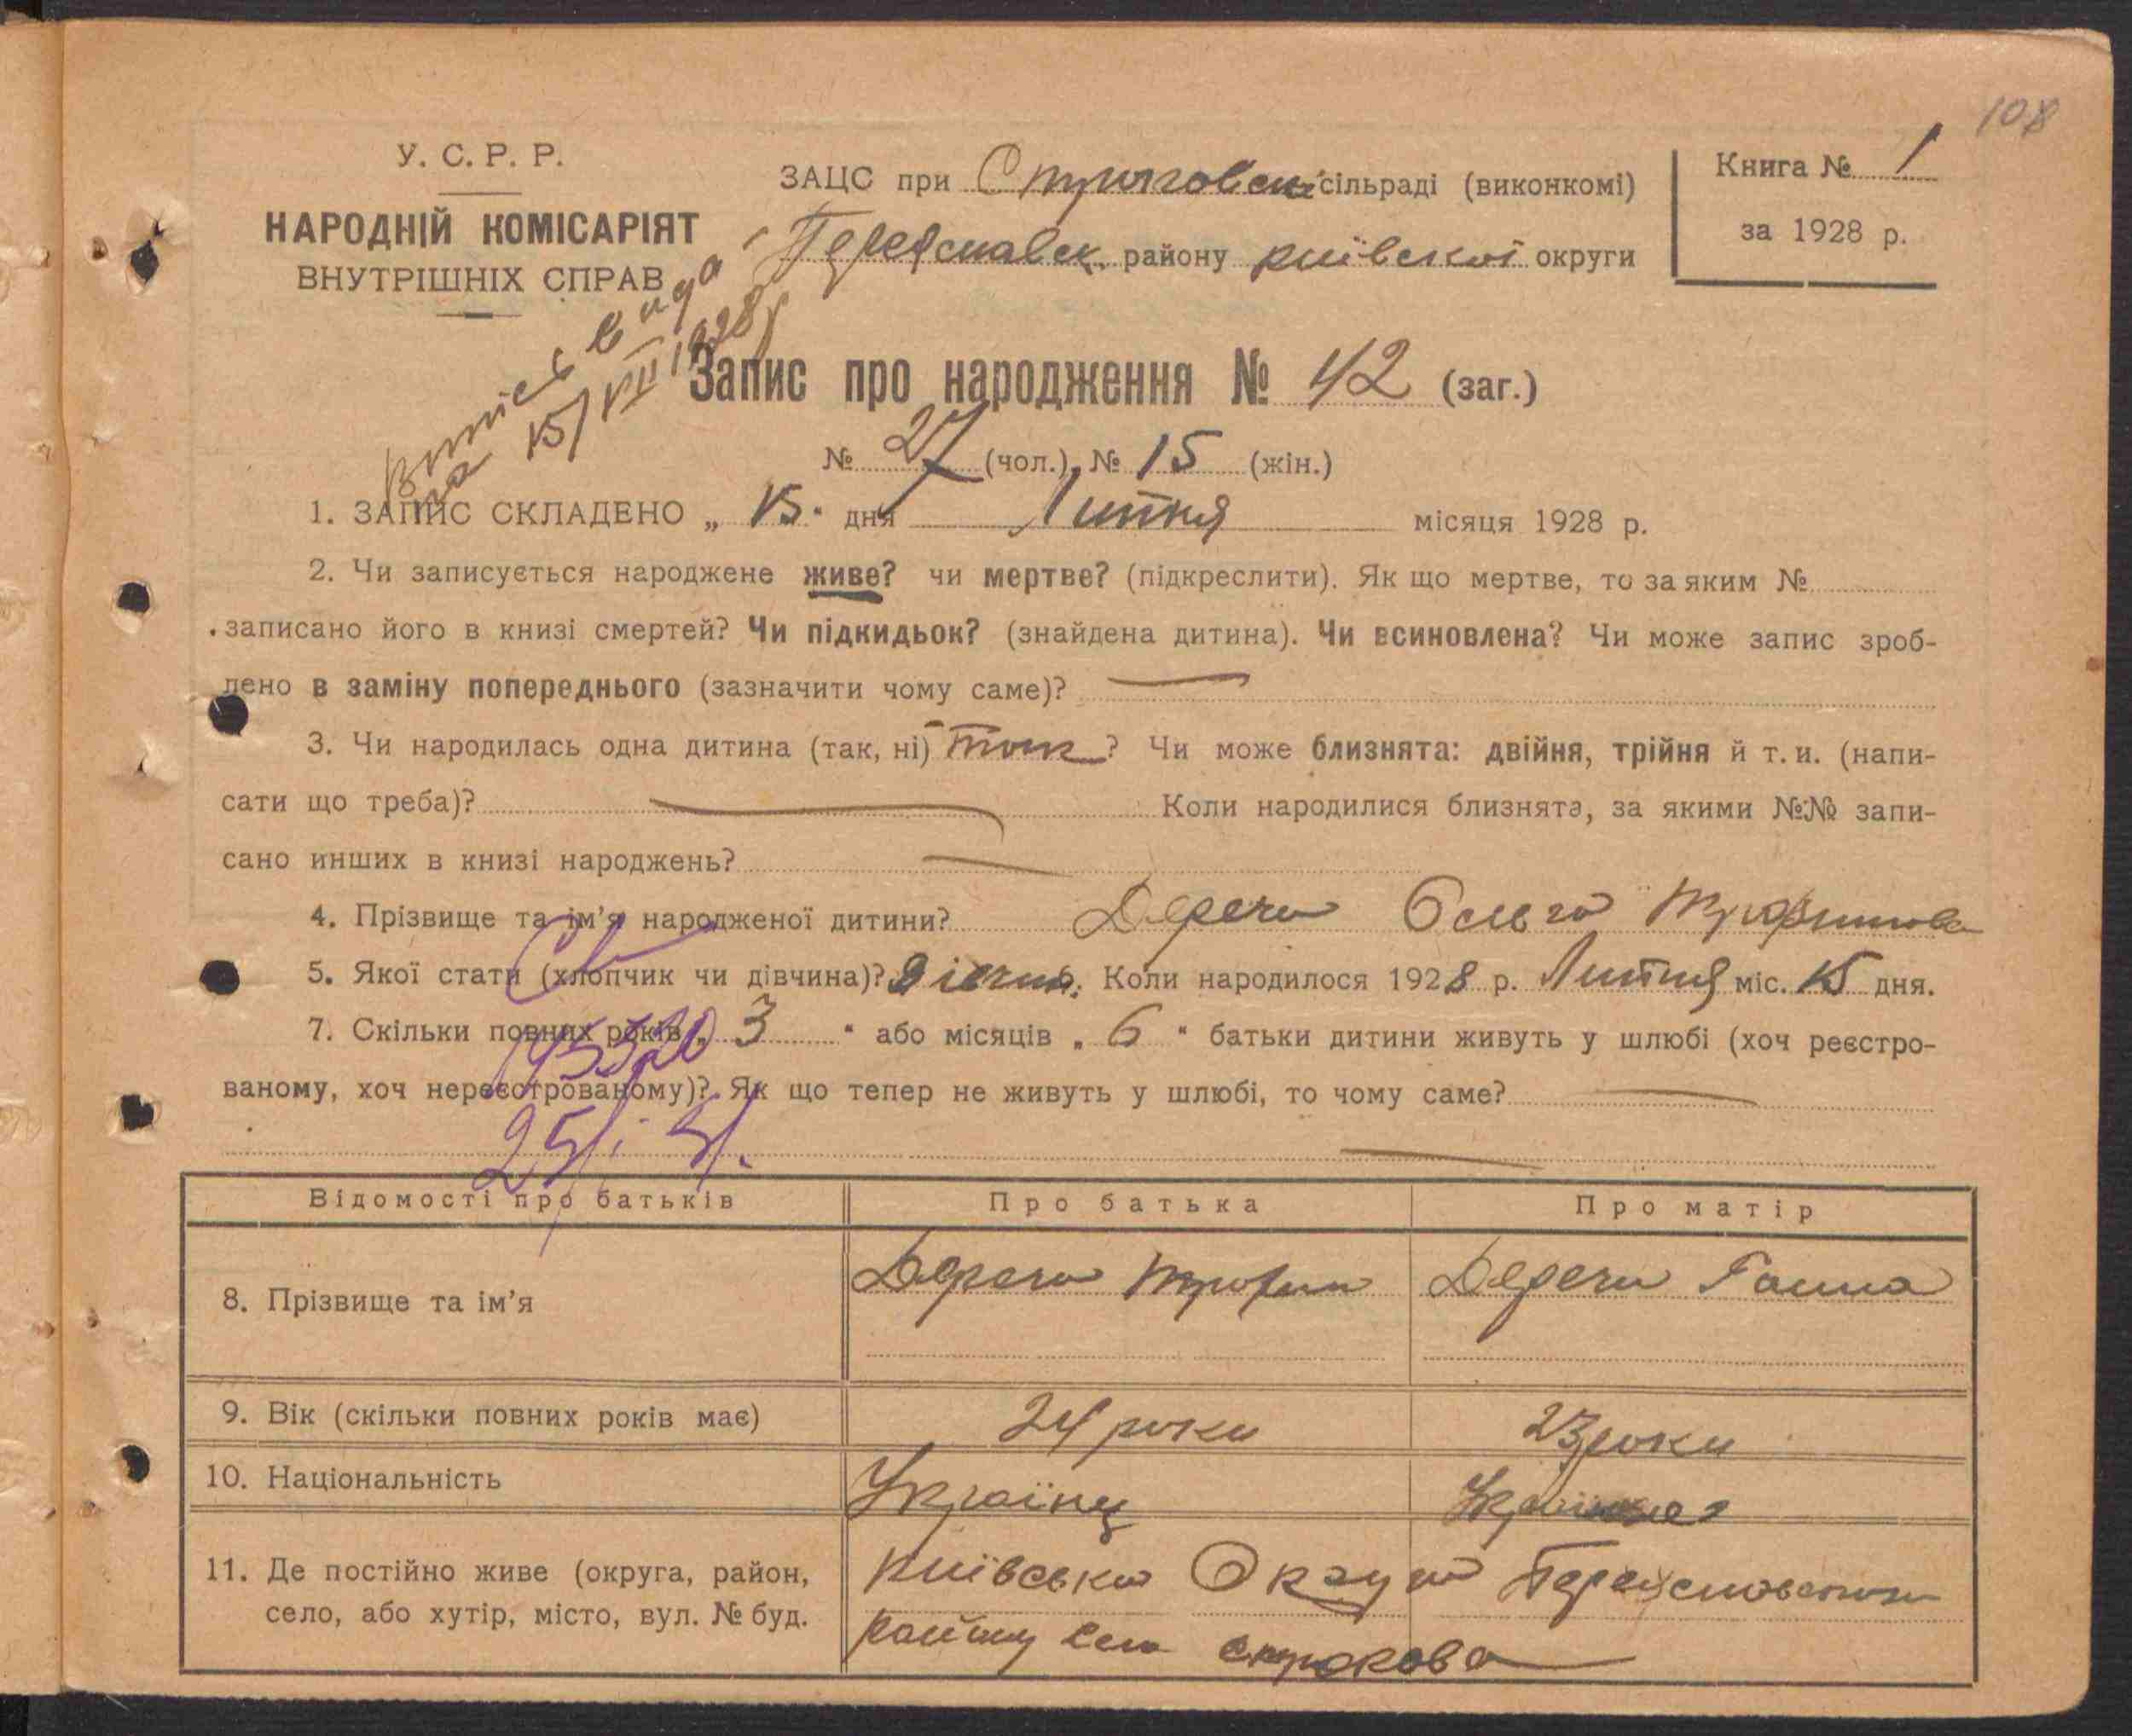 108
У. С. Р. Р.
НАРОДНІЙ КОМІСАРІЯТ
ВНУТРІШНІХ СПРАВ
ЗАЦС при сільраді (виконкомі)
Переяславск. району київської округи
Книга № 1
за 1928 р.
Витпись вида
на 15/VII 1928р
Запис про народження № 42 (заг.)
№ 27 (чол.), № 15 (жін.)
1. ЗАПИС СКЛАДЕНО „ 15. дня Липня місяця 1928 р.
2. Чи записується народжене живе? чи мертве? (підкреслити). Як що мертве, то за яким №
записано його в книзі смертей? Чи підкидьок? (знайдена дитина). Чи всиновлена? Чи може запис зроб-
лено в заміну попереднього (зазначити чому саме)? —
3. Чи народилась одна дитина (так, ні) так ? Чи може близнята: двійня, трійня й т. и. (напи-
сати що треба)? — Коли народилися близнята, за якими №№ запи-
сано инших в книзі народжень? —
4. Прізвище та ім’я народженої дитини? Дереча Ольга Трофимова
5. Якої стати (хлопчик чи дівчина)? дівчина. Коли народилося 1928 р. Липня міс. 15 дня.
7. Скільки повних років „ 3 “ або місяців „ 6 “ батьки дитини живуть у шлюбі (хоч реєстро-
ваному, хоч нереєстрованому)? Як що тепер не живуть у шлюбі, то чому саме? —
Відомості про батьків Про батька Про матір
8. Прізвище та ім’я Дереча Трофим Дереча Ганна
9. Вік (скільки повних років має) 24 роки 23 роки
10. Національність Українц Українка
11. Де постійно живе (округа, район, Київська Округа
село, або хутір, місто, вул. № буд. району село